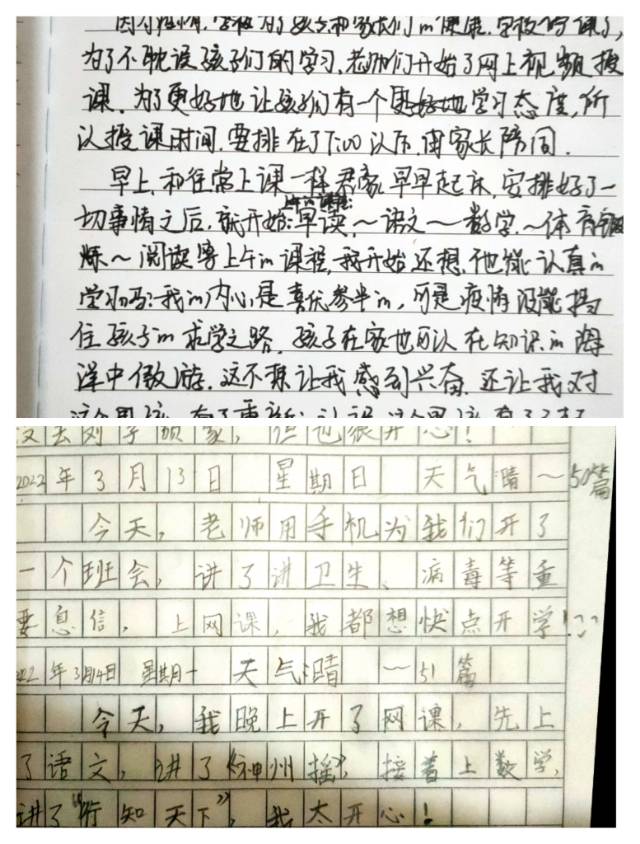 因为疫情，学校为了孩子和家长们的健康，学校停课了，
为了不耽误孩子们的学习，老师们开始了网上视频授
课，为了更好地让孩子们有一个更好地学习态度，所
以授课时间，要排在了7:00以后，由家长陪同．
早上，和往常上课一样，君豪早早起床，安排好了一
切事情之后，就开始：早读，～语文～数学，～体育
炼～阅读等上午的课程，我开始还想，他能认真的
学习吗？我的内心是喜忧参半的，可是疫情没能挡
住孩子的求学之路，孩子在家也可以在知识的海
洋中傲游，这不禁让我感到兴奋，还让我对
但也很开心！
2022年3月13日 星期日 天气晴～50篇
今天，老师用手机为我们开了
一个班会，讲了讲卫生、病毒等重
要息信，上网课，我都想快点开学！
年3月14日 星期一 天气晴 ～51篇
今天，我晚上开了网课，先上
了语文，讲了《神州摇》，接着上数学，
讲了“行知天下”，我太开心！